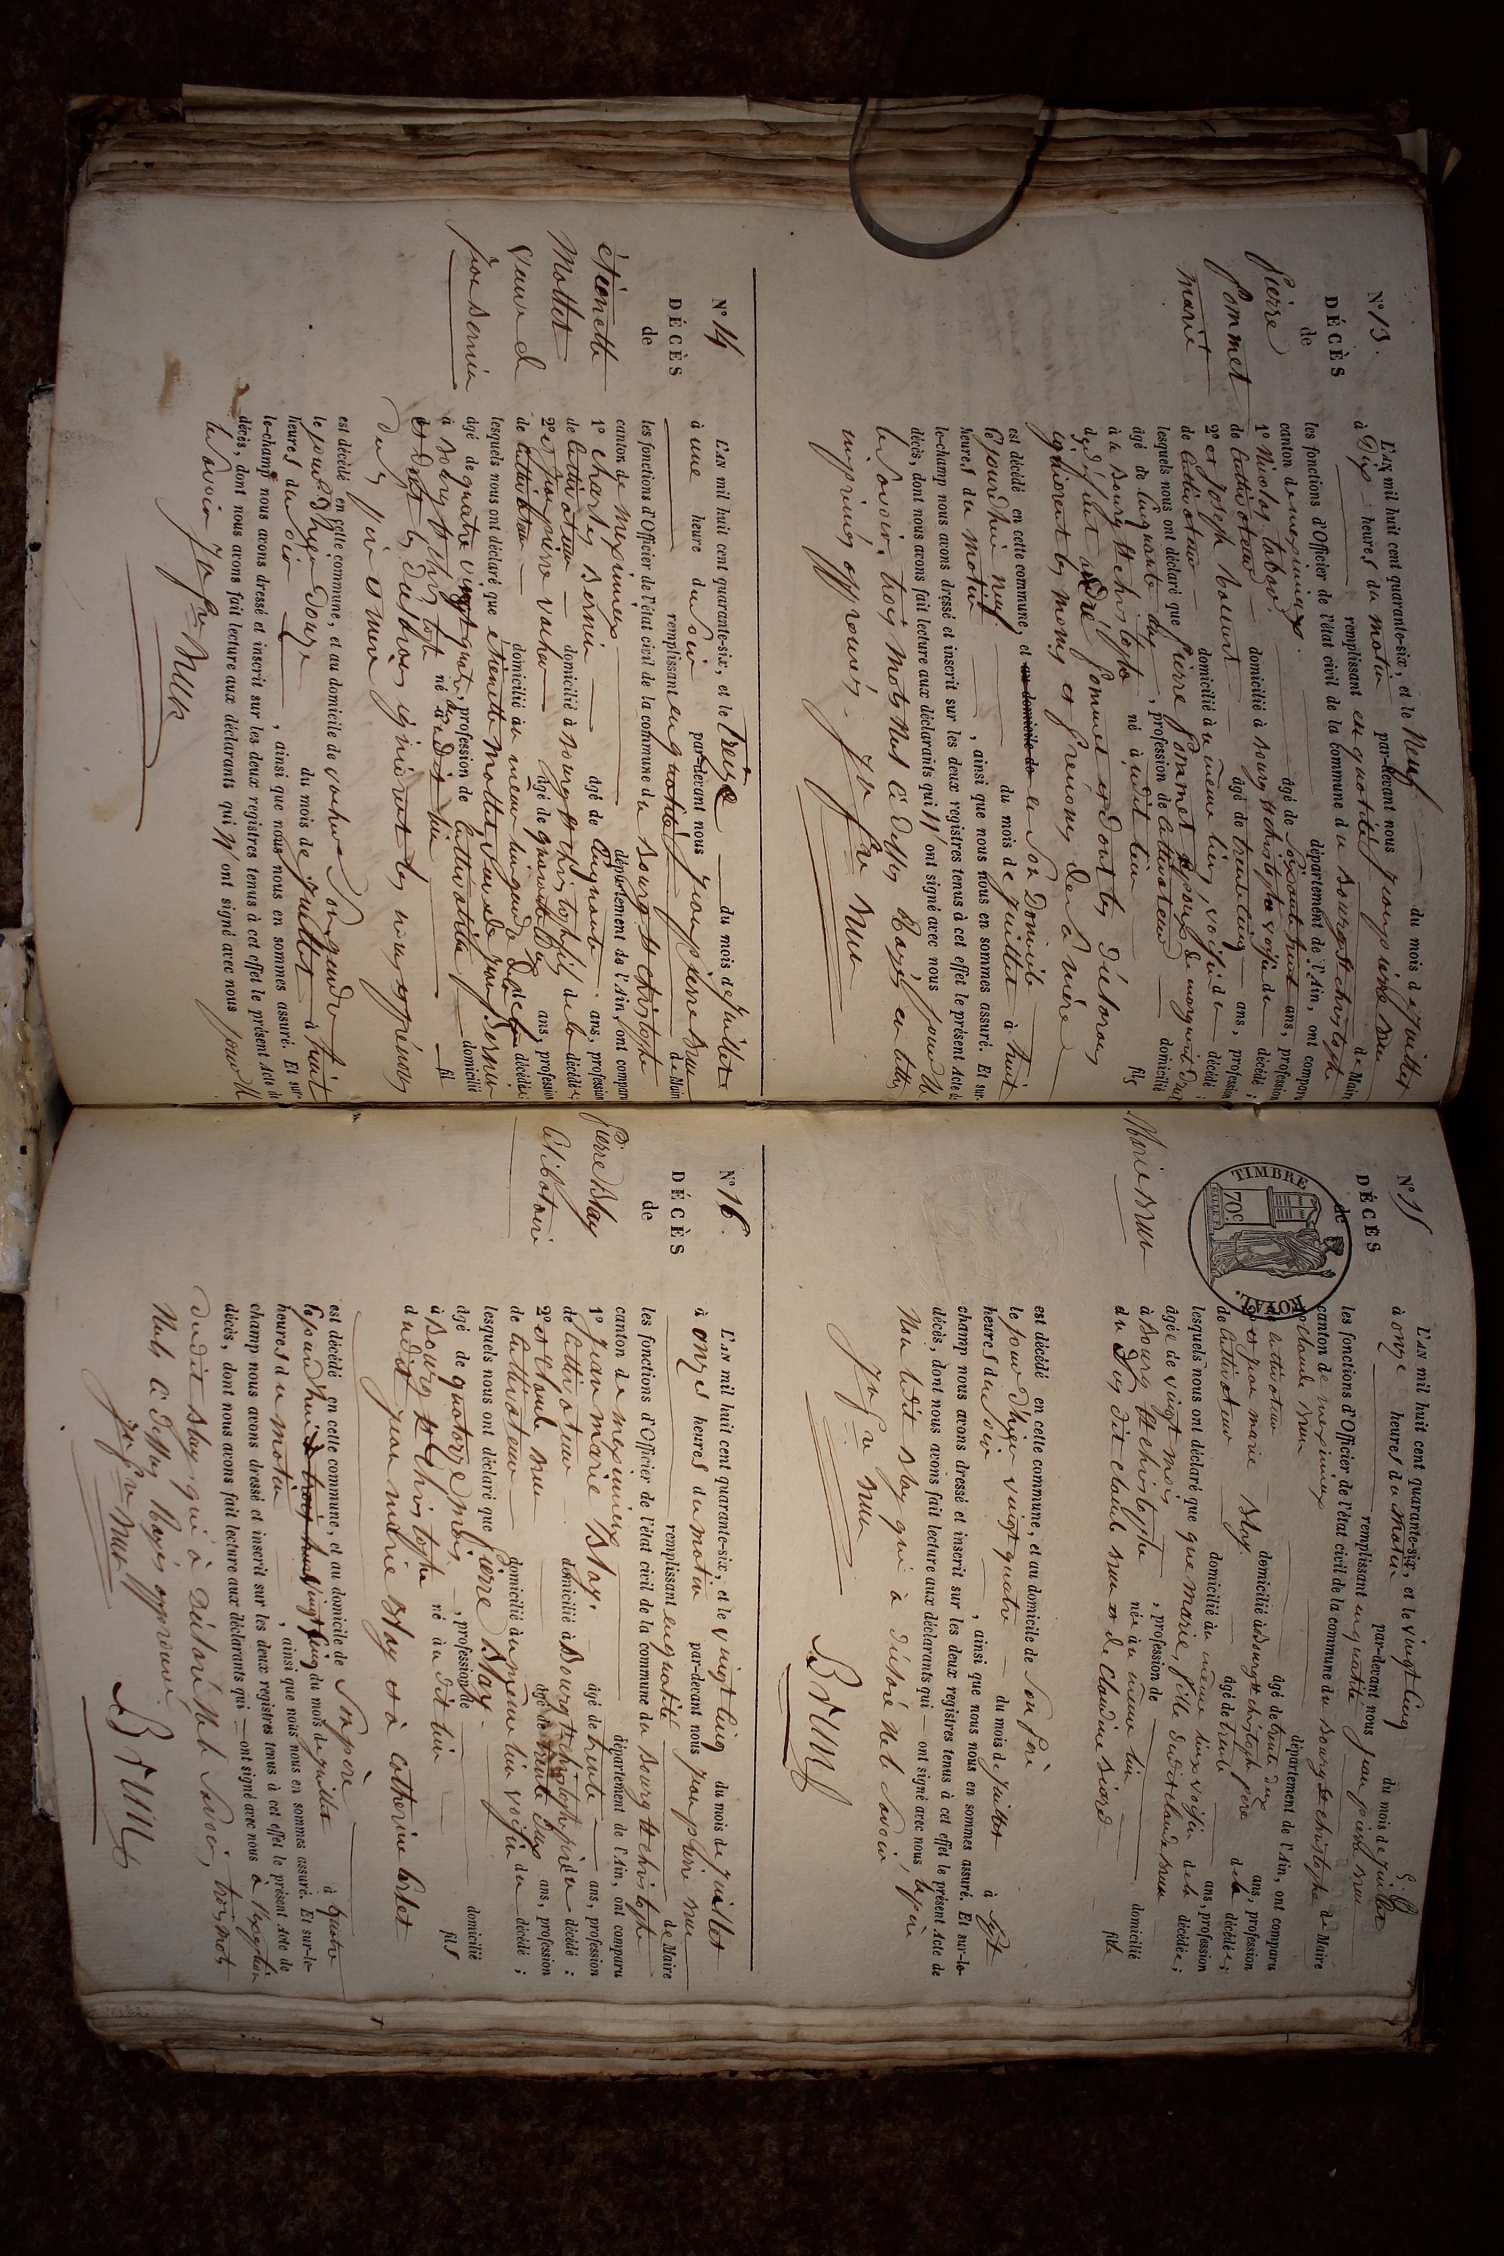 N° 13.
DÉCÈS
de
Pierre
Pommet
marié
L'AN mil huit cent quarante-six, et le neuf du mois de juillet
à Dix heures du matin par-devant nous jean pierre brun
remplissant en qualité de Maire
les fonctions d'Officier de l'état civil de la commune du bourg st christophe
canton de meximieux département de l'Ain, ont comparu
1° nicolas âgé de ans, profession
de cultivateur domicilié à bourg st christophe voisin du décédé ;
2° et joseph âgé de trente cinq ans, profession
de cultivateur domicilié à u même lieu, voisin du décédé ;
lesquels nous ont déclaré que Pierre Pommet époux de
âgé de cinquante six, profession de cultivateur domicilié
à u bourg st christophe né à u dit lieu fils
de défunt andré Pommet et dont les déclarans
ignorent les noms et prénoms de la mère
est décédé en cette commune, et au domicile de en Son Domicile
le jourd'hui neuf du mois de juillet à huit
heures du matin, ainsi que nous nous en sommes assuré. Et sur-
le-champ nous avons dressé et inscrit sur les deux registres tenus à cet effet le présent Acte de
décès, dont nous avons fait lecture aux déclarants qui n'ont signé avec nous pour ne
le savoir, trois mots nuls ci dessus Rayés en lettres
imprimées approuvés.
N° 14
DÉCÈS
de
étiennette
Mottet
veuve de
jean bernin
L'AN mil huit cent quarante-six, et le treize du mois de juillet
à une heure du soir par-devant nous jean pierre brun
remplissant en qualité de Maire
les fonctions d'Officier de l'état civil de la commune du bourg st christophe
canton de meximieux département de l'Ain, sont comparu
1° charles bernin âgé de cinquante ans, profession
de cultivateur domicilié à bourg st christophe fils de la décédée ;
2° et jean pierre vacher âgé de quarante ans, profession
de cultivateur domicilié à u même lieu gendre de la décédée ;
lesquels nous ont déclaré que étiennette mottet veuve de jean bernin
âgée de quatre vingt quatre, profession de cultivatrice domicilié
à bourg st christophe né à u dit lieu fil
et dont les déclarans ignorent les noms et prénoms
des père et mère
est décédé en cette commune, et au domicile de vacher Son gendre
le jour d'hyer douze du mois de juillet à huit
heures du soir, ainsi que nous nous en sommes assuré. Et sur-
le-champ nous avons dressé et inscrit sur les deux registres tenus à cet effet le présent Acte de
décès, dont nous avons fait lecture aux déclarants qui n'ont signé avec nous pour ne
le savoir
N° 15
DÉCÈS
de
TIMBRE ROYAL.
70c
Marie brun
L'AN mil huit cent quarante-six, et le vingt cinq du mois de juillet
à onze heures du matin par-devant nous jean pierre brun
remplissant en qualité de Maire
les fonctions d'Officier de l'état civil de la commune du bourg st christophe
canton de meximieux département de l'Ain, ont comparu
1° claude brun âgé de trente deux ans, profession
de cultivateur domicilié à bourg st christophe père de la décédée ;
2° et jean marie blay. âgé de trente ans, profession
de cultivateur domicilié à u même lieu voisin de la décédée ;
lesquels nous ont déclaré que marie, fille dudit claude brun
âgée de vingt mois, profession de domicilié
à bourg st christophe née à u même lieu fille
du Sus dit claude brun et de claudine
est décédé en cette commune, et au domicile de Son père
le jour d'hyer vingt quatre du mois de juillet à sept
heures du soir, ainsi que nous nous en sommes assuré. Et sur-le-
champ nous avons dressé et inscrit sur les deux registres tenus à cet effet le présent Acte de
décès, dont nous avons fait lecture aux déclarants qui ont signé avec nous le père
Non ledit blay qui à déclaré ne le savoir
Brun
N° 16.
DÉCÈS
de
Pierre Blay
L'AN mil huit cent quarante-six, et le vingt cinq du mois de juillet
à onze heures du matin par-devant nous jean pierre brun
remplissant en qualité de Maire
les fonctions d'Officier de l'état civil de la commune du bourg st christophe
canton de meximieux département de l'Ain, ont comparu
1° jean marie Blay. âgé de trente ans, profession
de cultivateur domicilié à Bourg st christophe père du décédé :
2° et claude brun âgé de trente deux ans, profession
de cultivateur domicilié à u même lieu voisin du décédé ;
lesquels nous ont déclaré que pierre Blay.
âgé de quatorze mois, profession de domicilié
à Bourg st christophe né à u dit lieu fils
dudit jean marie Blay et à catherine
est décédé en cette commune, et au domicile de Son père
le jourd'hui vingt cinq du mois de juillet à quatre
heures du matin, ainsi que nous nous en sommes assuré. Et sur-le-
champ nous avons dressé et inscrit sur les deux registres tenus à cet effet le présent Acte de
décès, dont nous avons fait lecture aux déclarants qui ont signé avec nous à l'exception
dudit blay. qui à déclaré ne le savoir, trois mots
Nuls ci dessus Rayés approuvé.
Brun